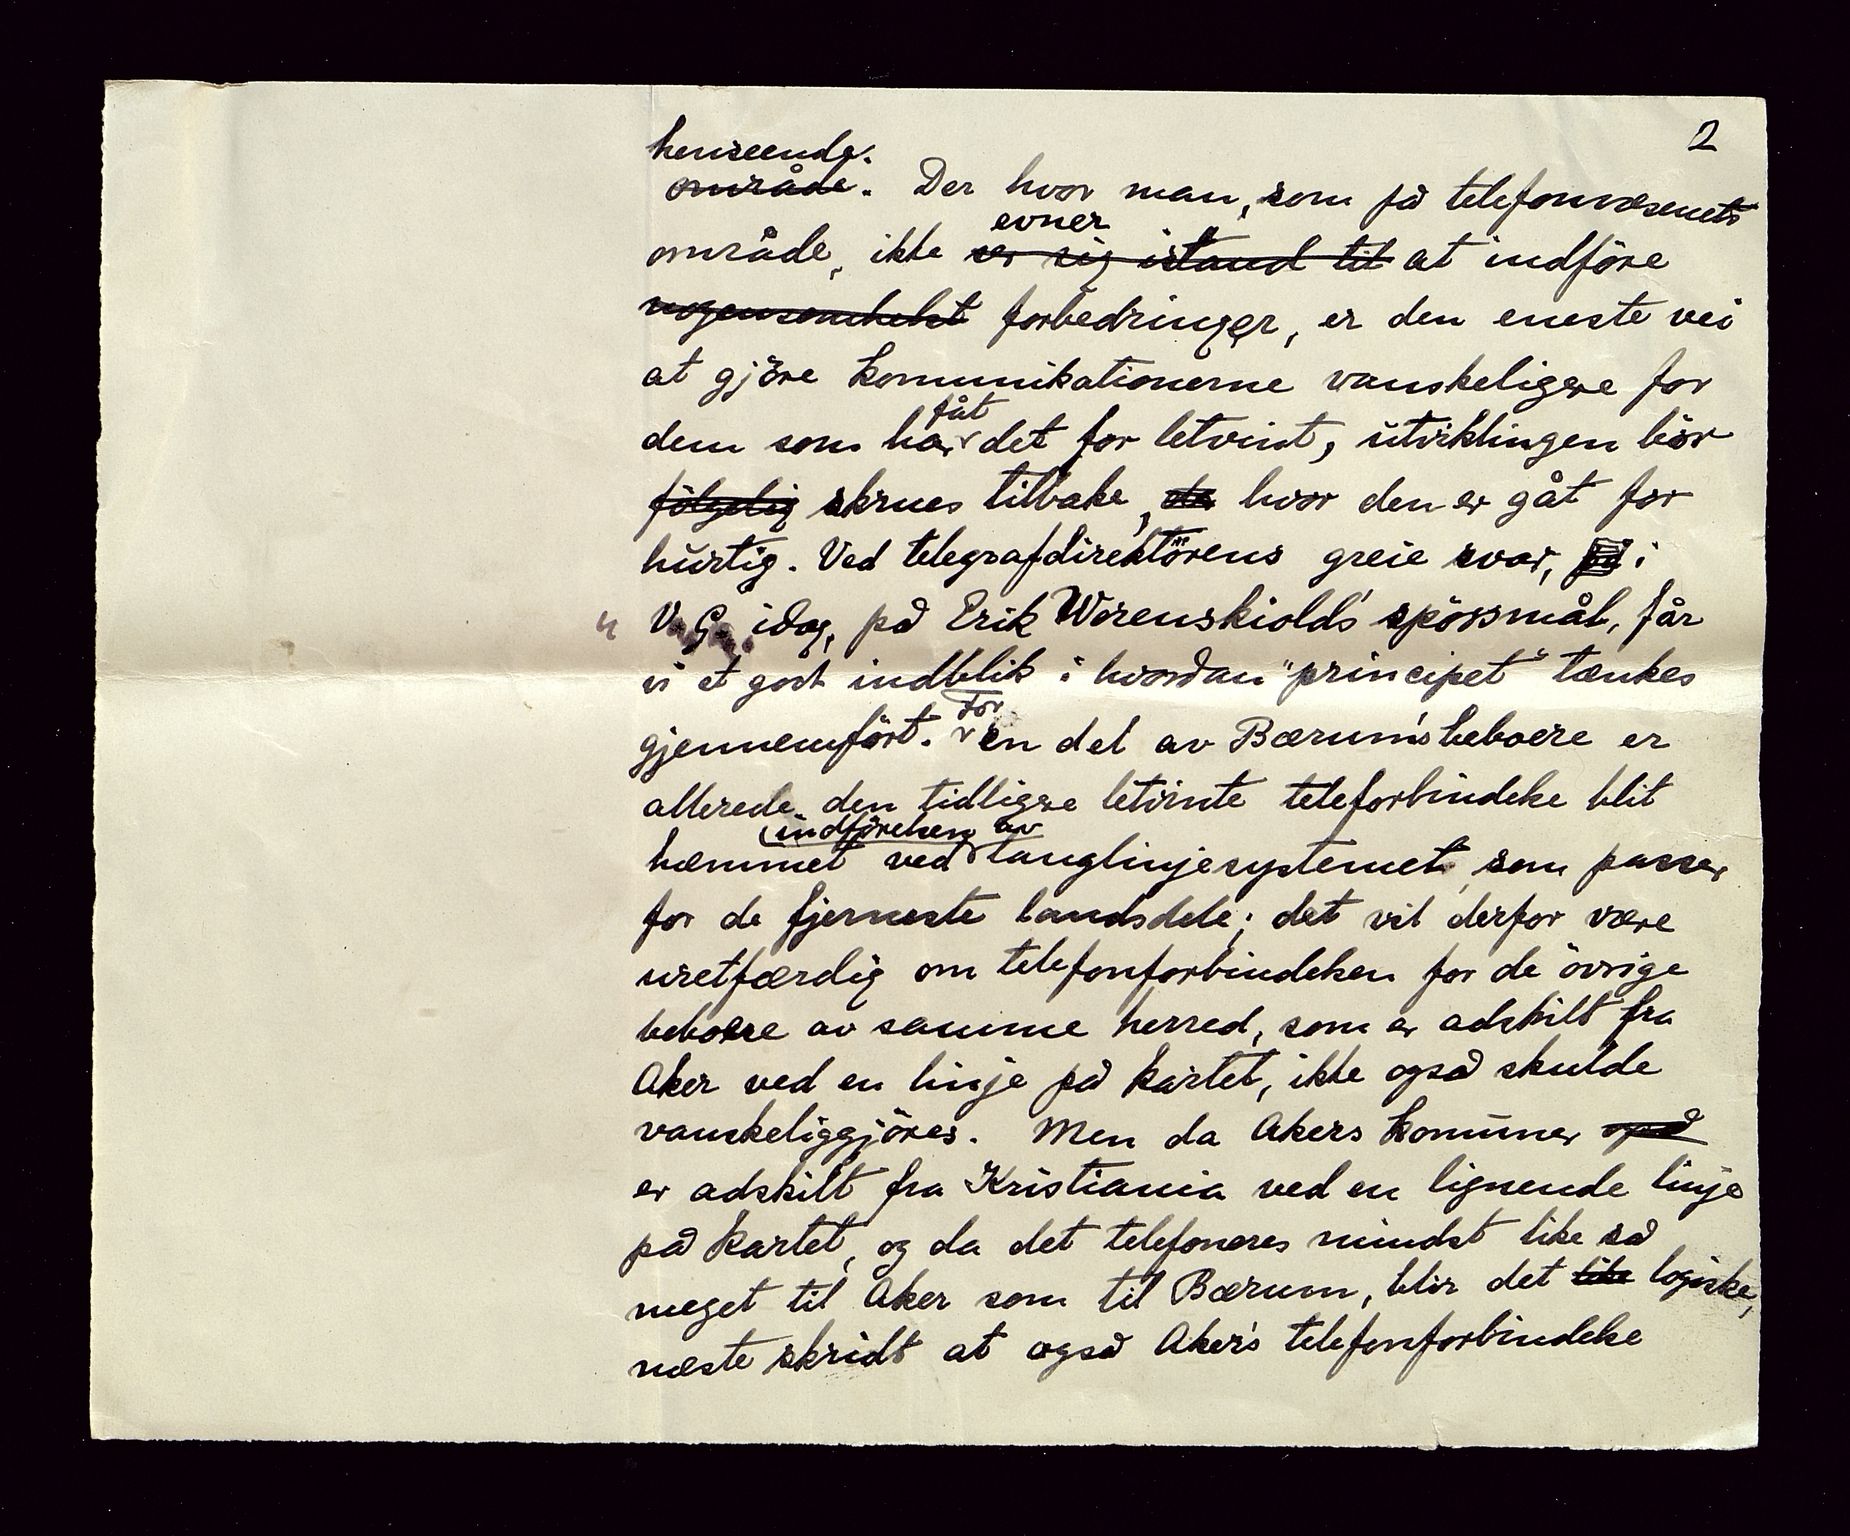 2
henseende.
område. Der hvor man, som på telefonvæsenets
evner
område, ikke ser sig istand til at indföre
nogensomhelst forbedringer, er den eneste vei
at gjöre kommunikationerne vanskeligere for
fåt
dem som har det for letvint, utviklingen bör
fölgelig skrues tilbake, der hvor den er gåt for
hurtig. Ved telegrafdirektörens greie svar, på i
V. G. idag, på Erik Werenskiold's spörsmål, får
vi et godt indblik i hvordan "principet" tænkes
For
gjennemfört. en del av Bærum's beboere er
allerede den tidligere letvinte teleforbindelse blit
indförelsen av
hæmmet ved langlinjesystemet, som passer
for de fjerneste landsdele; det vil derfor være
uretfærdig om telefonforbindelsen for de övrige
beboere av samme herred, som er adskilt fra
Aker ved en linje på kartet, ikke også skulde
vanskeliggjöres. Men da Akers komune også
er adskilt fra Kristiania ved en lignende linje
på kartet, og da det telefoneres mindst like så
meget til Aker som til Bærum, blir det like logiske,
næste skridt at også Aker's telefonforbindelse